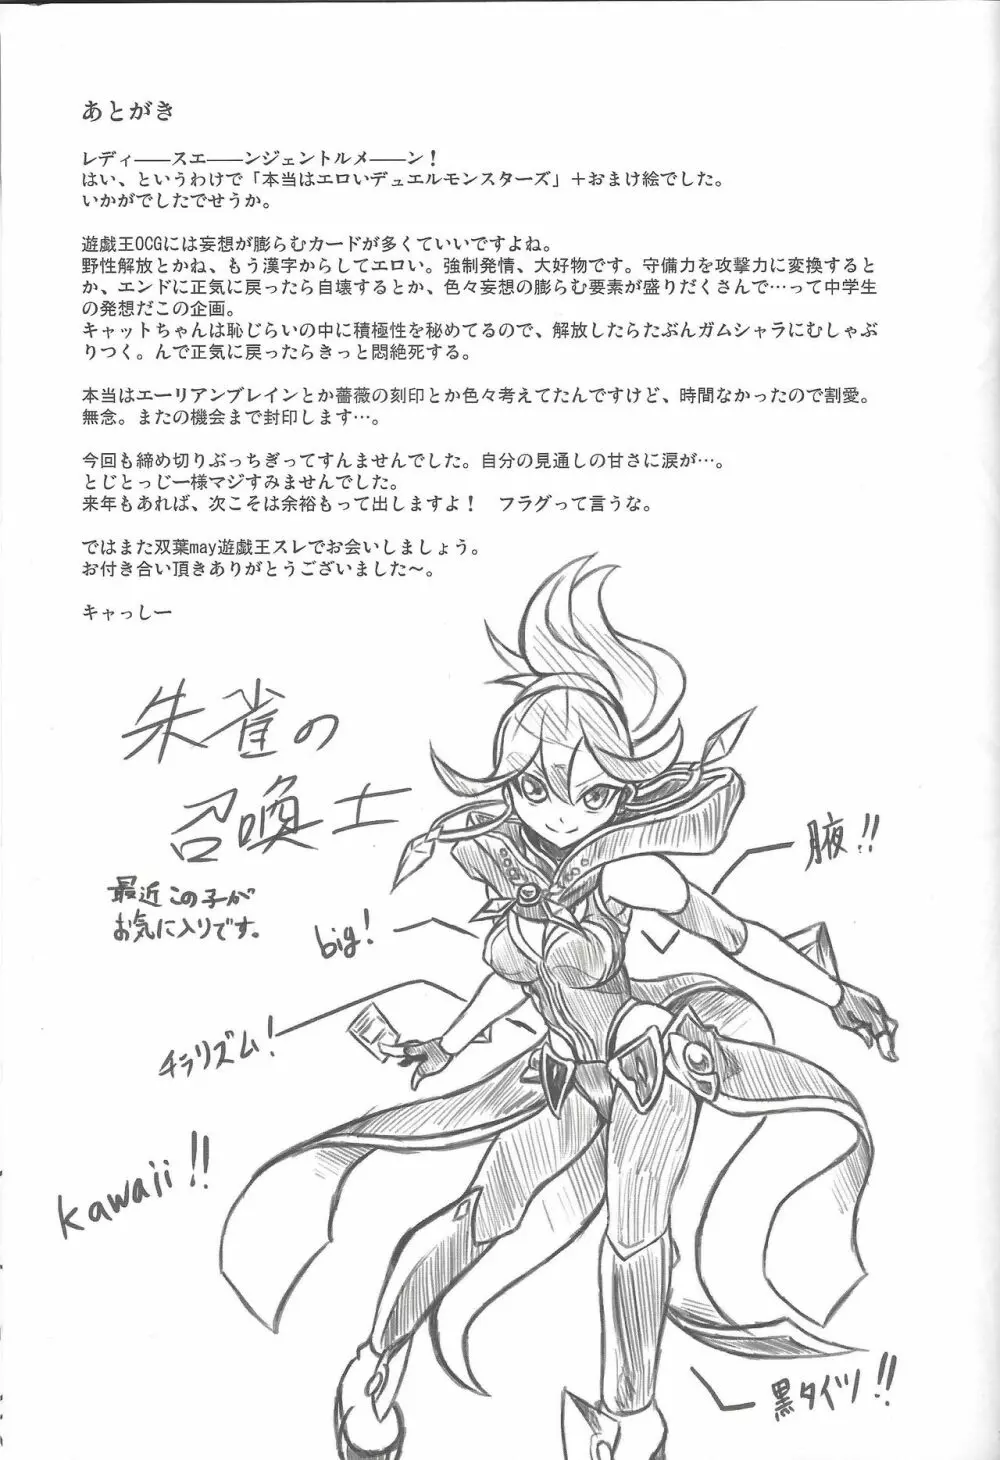 あとがき
レディ――スエ――ンジェントルメ――ン！
はい、というわけで「本当はエロいデュエルモンスターズ」＋おまけ絵でした。
いかがでしたでせうか。
遊戯王OCGには妄想が膨らむカードが多くていいですよね。
野性解放とかね、もう漢字からしてエロい。強制発情、大好物です。守備力を攻撃力に変換すると
か、エンドに正気に戻ったら自壊するとか、色々妄想の膨らむ要素が盛りだくさんで…って中学生
の発想だこの企画。
キャットちゃんは恥じらいの中に積極性を秘めてるので、解放したらたぶんガムシャラにむしゃぶ
りつく。んで正気に戻ったらきっと悶絶死する。
本当はエーリアンブレインとか薔薇の刻印とか色々考えてたんですけど、時間なかったので割愛。
無念。またの機会まで封印します…。
今回も締め切りぶっちぎってすんませんでした。自分の見通しの甘さに涙が…。
とじとっじー様マジすみませんでした。
来年もあれば、次こそは余裕もって出しますよ！　フラグって言うな。
ではまた双葉may遊戯王スレでお会いしましょう。
お付き合い頂きありがとうございました～。
キャっしー
朱雀の
召喚士
最近この子が
お気に入りです。
腋!!
big!
チラリズム!
kawaii!!
黒タイツ!!